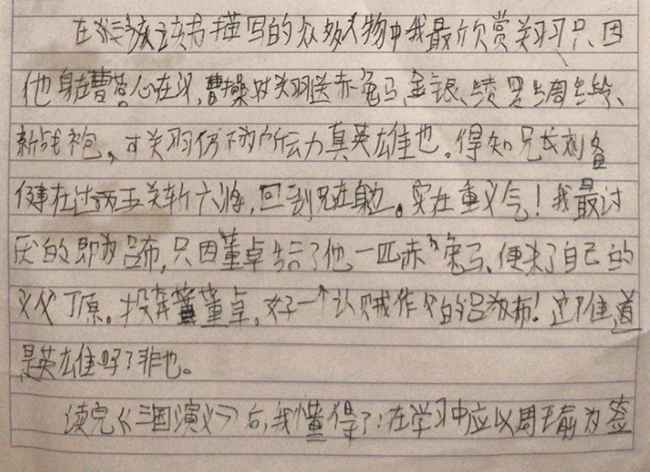 在这该书描写的众多人物中我最欣赏关羽,只因
他身在曹营心在汉,曹操对关羽送赤兔马、金银、绫罗绸缎、
新战袍,可关羽仍不为所动力真英雄也。得知兄长刘备
健在过五关斩六将,回到兄在身边。实在重义气!我最讨
厌的即为吕布,只因董卓给了他一匹赤兔马、便杀了自己的
义父丁原。投奔董卓,好一个认贼作父的吕布!这难道
是英雄吗?非也。
读完《三国演义》后,我懂得了:在学习中应以周瑜前为鉴